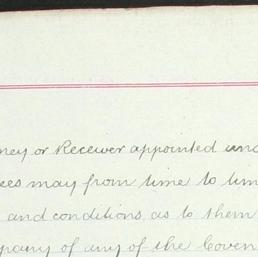 ney or Receiver appointed und
ees may from time to tim
and conditions as to them
pany of any of the Coven